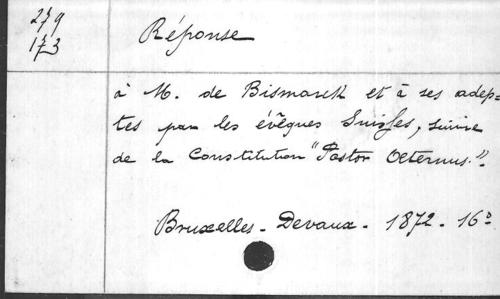 279
173
Réponse
à M. de Bismarck et à ses adep-
tes par les évêques Suisses, suivie
de la Constitution "Pastor Oeternus."
Bruxelles - Devaux - 1872 - 16º